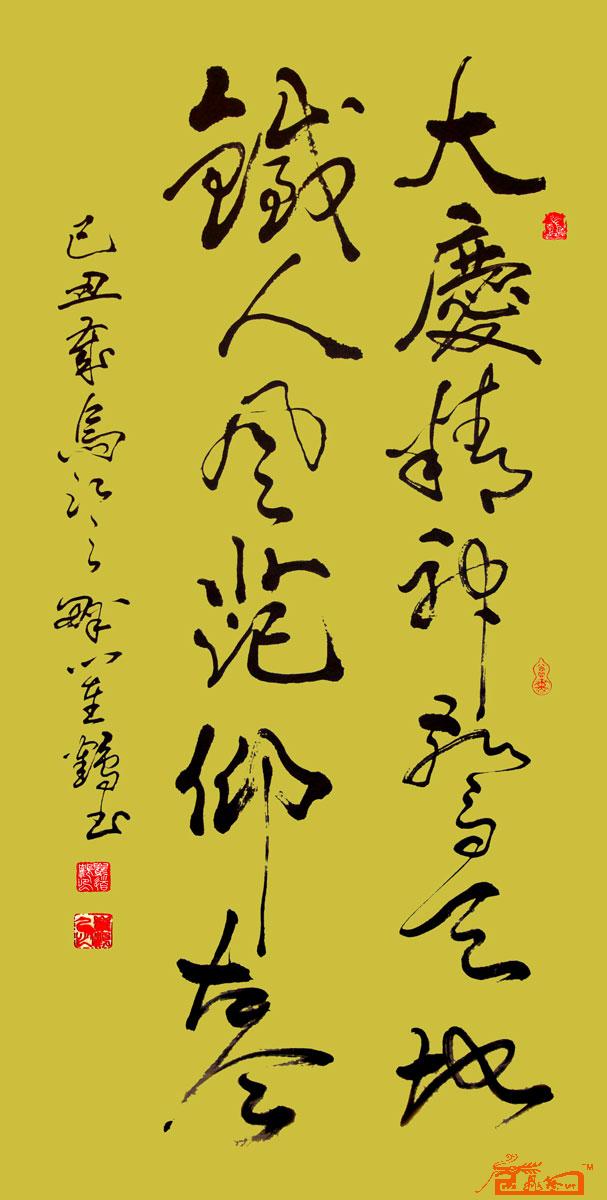 大慶精神驚天地
鐵人風范仰古今
己丑歲烏江之畔鶴書